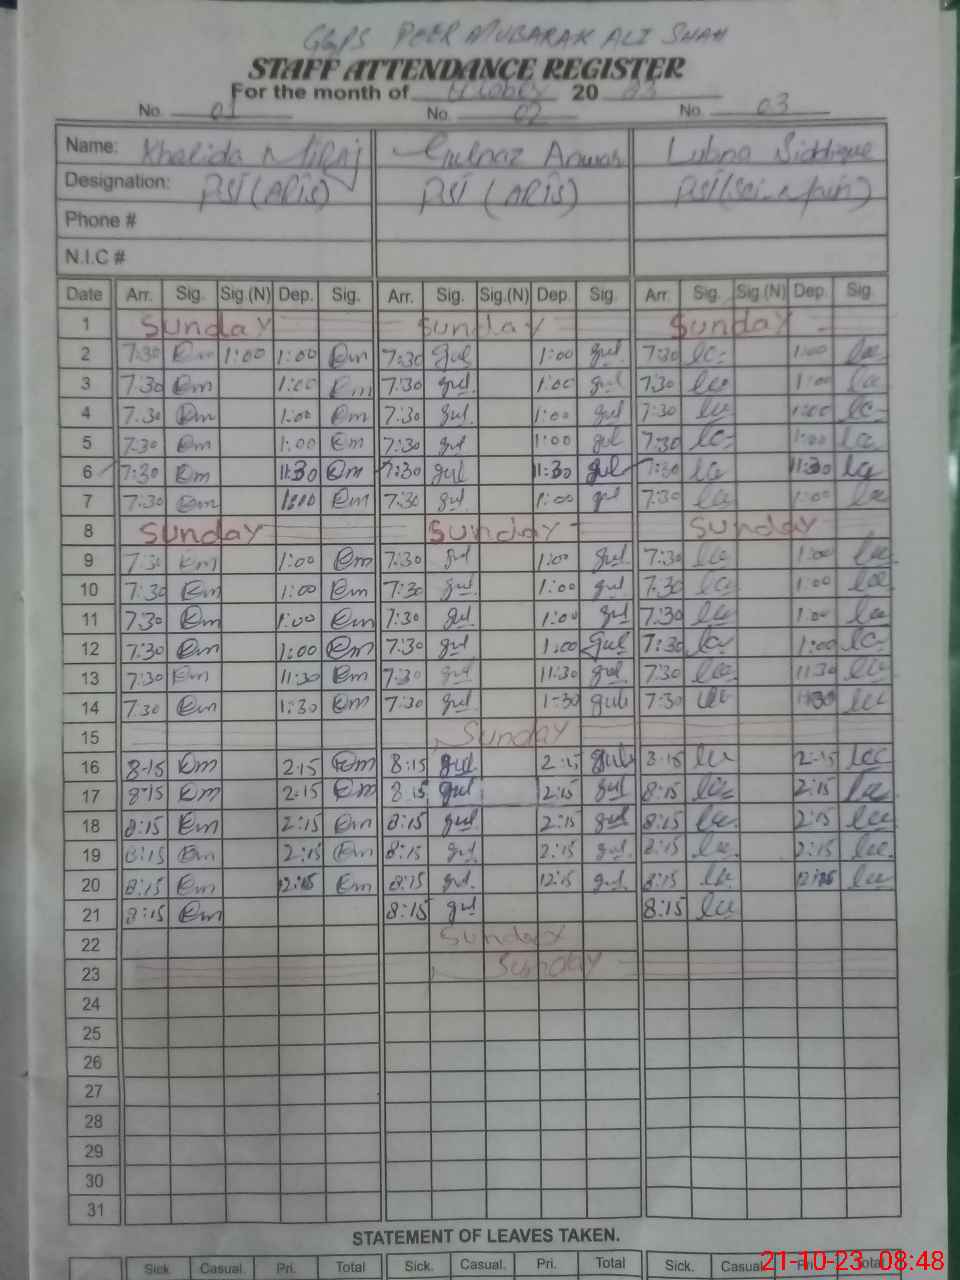 GGPS PEER MUBARAK ALI SHAH
STAFF ATTENDANCE REGISTER
For the month of October 20 23
No. 01 No. 02 No. 03
Name: Khalida Miraj Gulnaz Anwar Lubna Siddique
Designation: PST (APTS) PST (APTS) PST
Phone #
N.I.C #
Date Arr. Sig. Sig.(N) Dep. Sig. Arr. Sig. Sig.(N) Dep. Sig. Arr. Sig. Sig.(N) Dep. Sig.
1 Sunday Sunday Sunday
2 7:30 Em 1:00 1:00 Em 7:30 gul 1:00 gul 7:30 1:00
3 7:30 Em 1:00 Em 7:30 gul 1:00 gul 7:30 1:00
4 7:30 Em 1:00 Em 7:30 gul 1:00 gul 7:30 1:00
5 7:30 Em 1:00 Em 7:30 gul 1:00 gul 7:30 1:00
6 7:30 Em 11:30 Em 7:30 gul 11:30 gul 7:30 11:30
7 7:30 Em 1:00 Em 7:30 gul 1:00 gul 7:30 1:00
8 Sunday Sunday Sunday
9 7:30 Em 1:00 Em 7:30 gul 1:00 gul 7:30 1:00
10 7:30 Em 1:00 Em 7:30 gul 1:00 gul 7:30 1:00
11 7:30 Em 1:00 Em 7:30 gul 1:00 gul 7:30 1:00
12 7:30 Em 1:00 Em 7:30 gul 1:00 gul 7:30 1:00
13 7:30 Em 11:30 Em 7:30 gul 11:30 gul 7:30 11:30
14 7:30 Em 1:30 Em 7:30 gul 1:30 gul 7:30 1:30
15 Sunday
16 8:15 Em 2:15 Em 8:15 gul 2:15 gul 8:15 2:15
17 8:15 Em 2:15 Em 8:15 gul 2:15 gul 8:15 2:15
18 8:15 Em 2:15 Em 8:15 gul 2:15 gul 8:15 2:15
19 8:15 Em 2:15 Em 8:15 gul 2:15 gul 8:15 2:15
20 8:15 Em 12:15 Em 8:15 gul 12:15 gul 8:15 12:15
21 8:15 Em 8:15 gul 8:15
22 Sunday
23 Sunday
24
25
26
27
28
29
30
31
STATEMENT OF LEAVES TAKEN.
Sick. Casual. Pri. Total Sick. Casual. Pri. Total Sick. Casual. Pri. Total
21-10-23 08:48